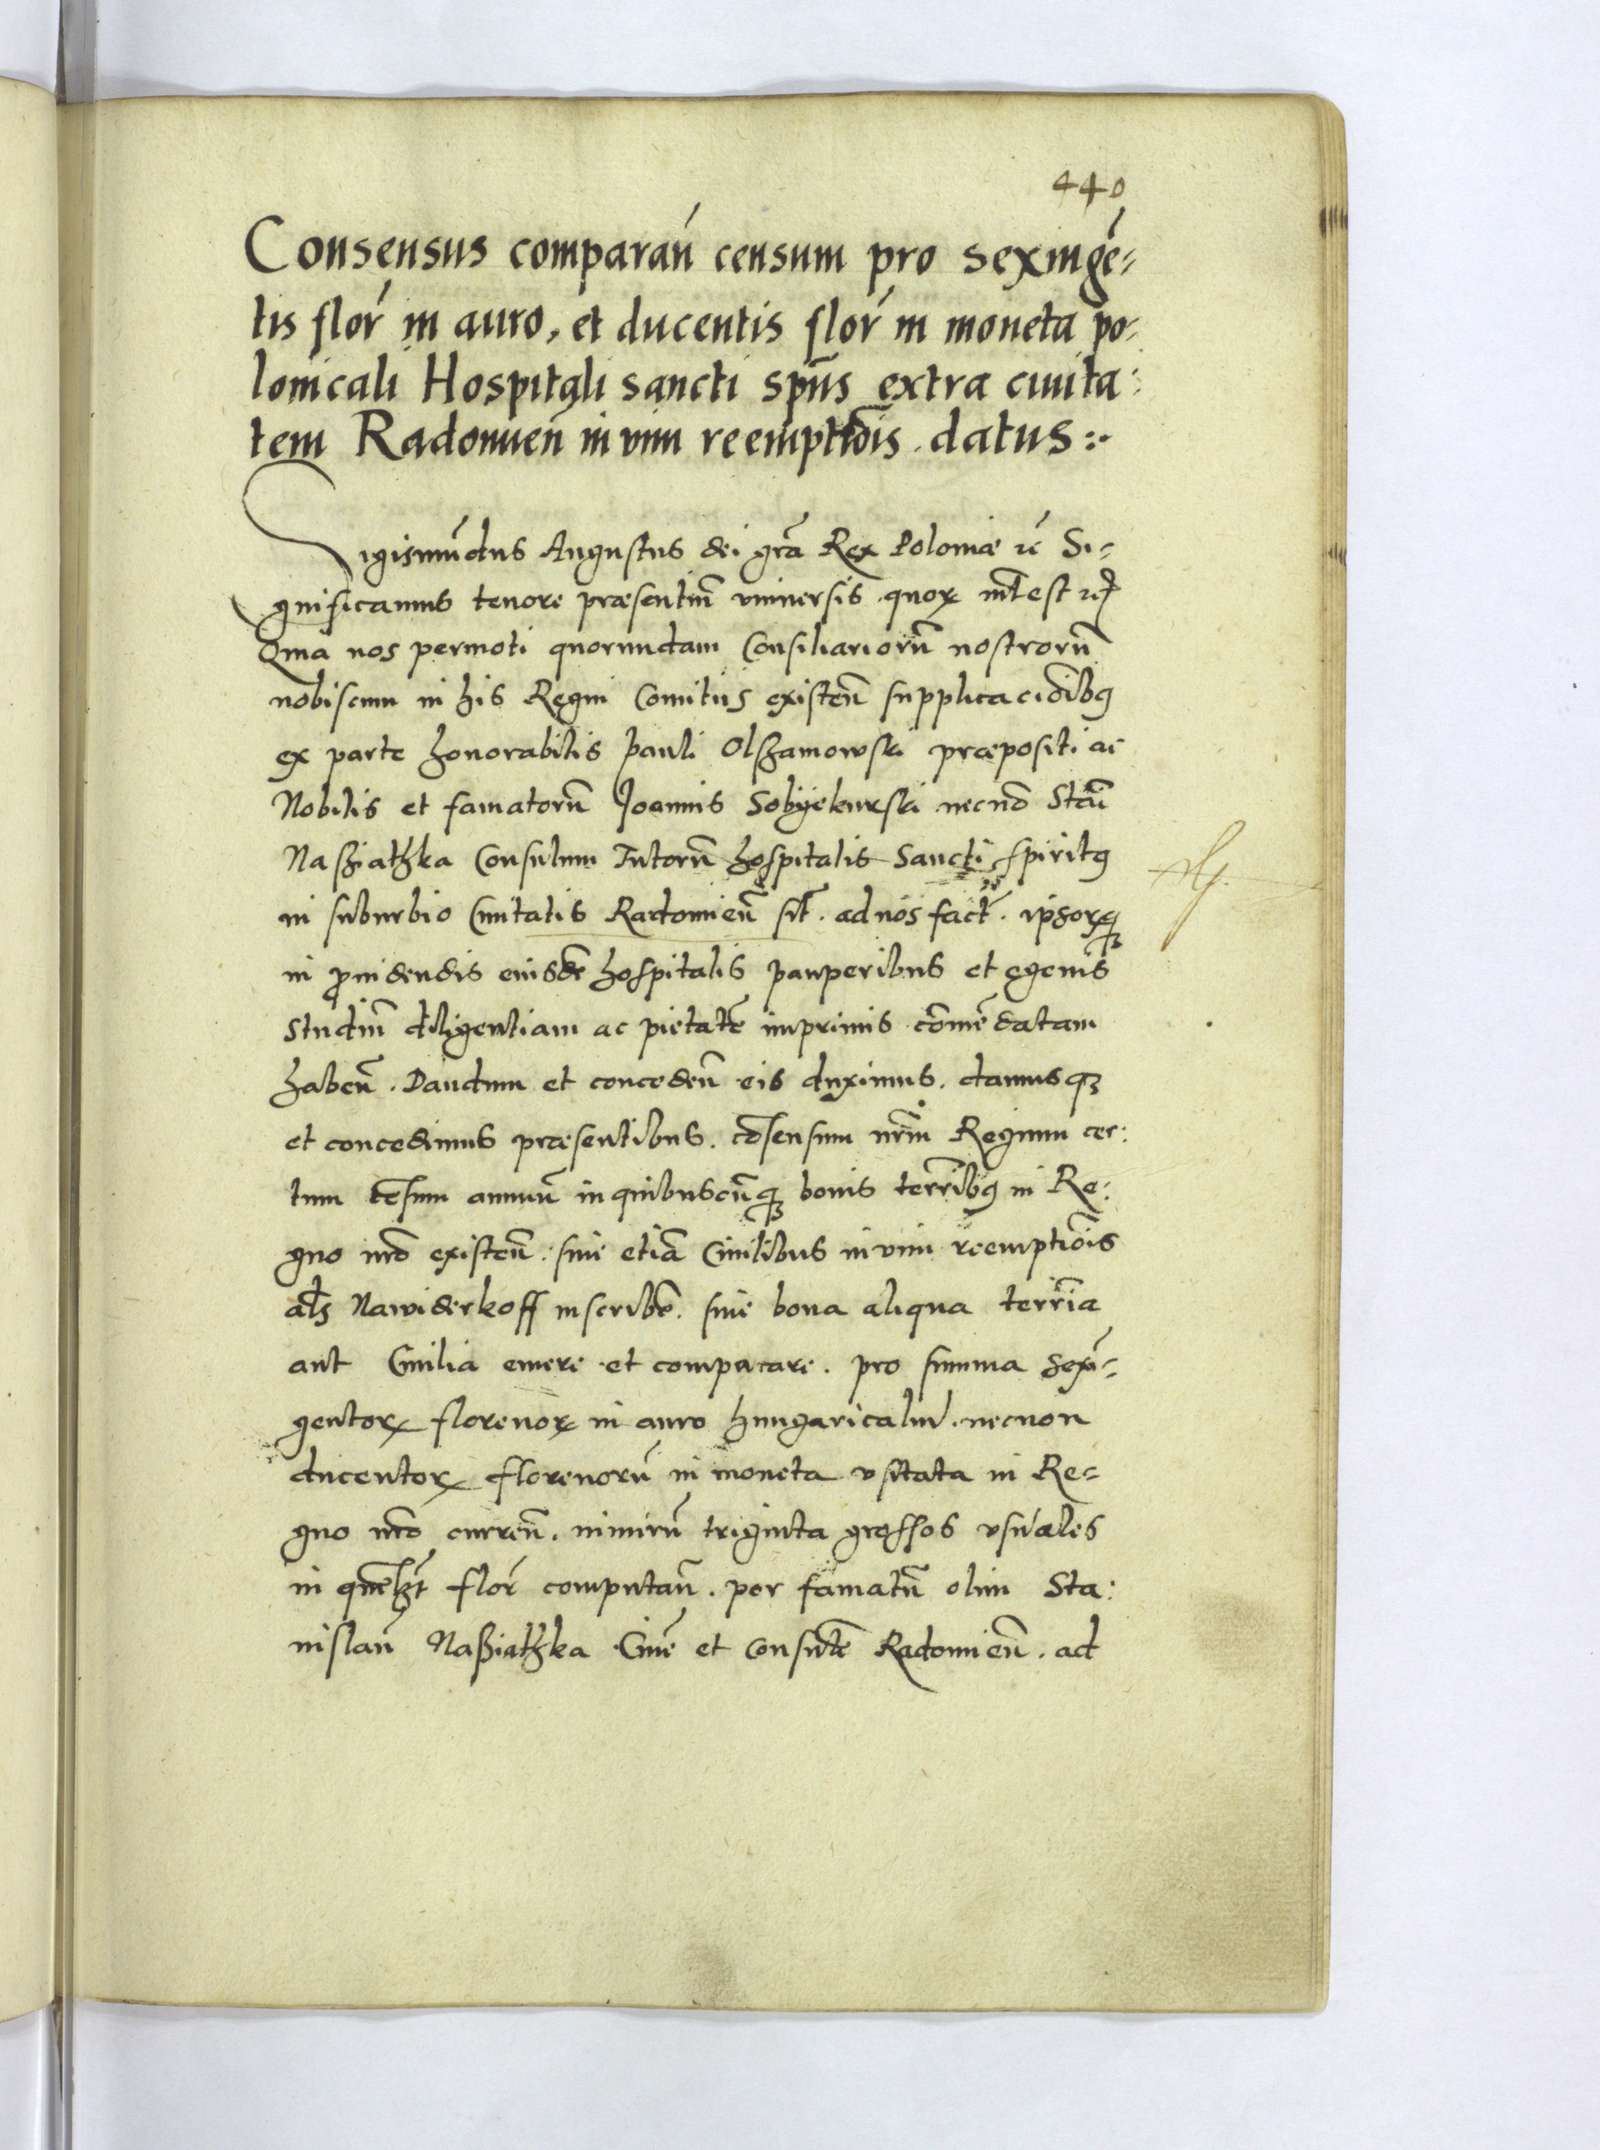 440
Consensus comparan̄ censum pro sexingē-
tis flor̄ in auro, et ducentis flor̄ in moneta po-
lonicali Hospitali sancti spūs extra ciuita-
tem Radomien̄ in vim reemptiōis datus:.
Sigismūdus Augustus dei gr̄a Rex Poloniæ rc̄ Si-
gnificamus tenore præsentiū vniuersis quoꝝ int̄est
Quia nos permoti quorundam Consiliariorū nostrorū
nobiscum in his Regni Comitiis existen̄ supplicaciōibꝫ
ex parte honorabilis Pauli Olszamowski præpositi ac
Nobilis et famatorū Joannis Sobyekurski necnō Stan̄
Naßiathka Consulum Tutorū hospitalis Sancti Spiritꝫ
in suburbio Ciuitatis Radomien̄ sit̄. ad nos fact̄. ipsorꝫ
in ꝓuidendis eiusdē hospitalis pauperibus et egenis
studiū diligentiam ac pietatē imprimis cōmēdatam
haben̄. Dandum et conceden̄ eis duximus. damusqꝫ
et concedimus præsentibus. cōsensum nr̄m Regium cer:
tum cēsum annuū in quibuscūqꝫ bonis terr̄ibꝫ in Re-
gno nr̄o existen̄. siue etiā Ciuilibus in vim reemptiōis
al̄s Nawiderkoff inscriben̄. siue bona aliqua terr̄ia
aut Ciuilia emere et comparare. pro summa sexī-
gentoꝝ florenoꝝ in auro hungaricaliū. necnon
ducentoꝝ florenorū in moneta vsitata in Re-
gno nr̄o curren̄. nimirū triginta grossos vsuales
in quēlꝫt flor̄ computan̄. per famatū olim Sta:
nislaū Naßiathka Ciuē et Consulē Radomien̄. ad